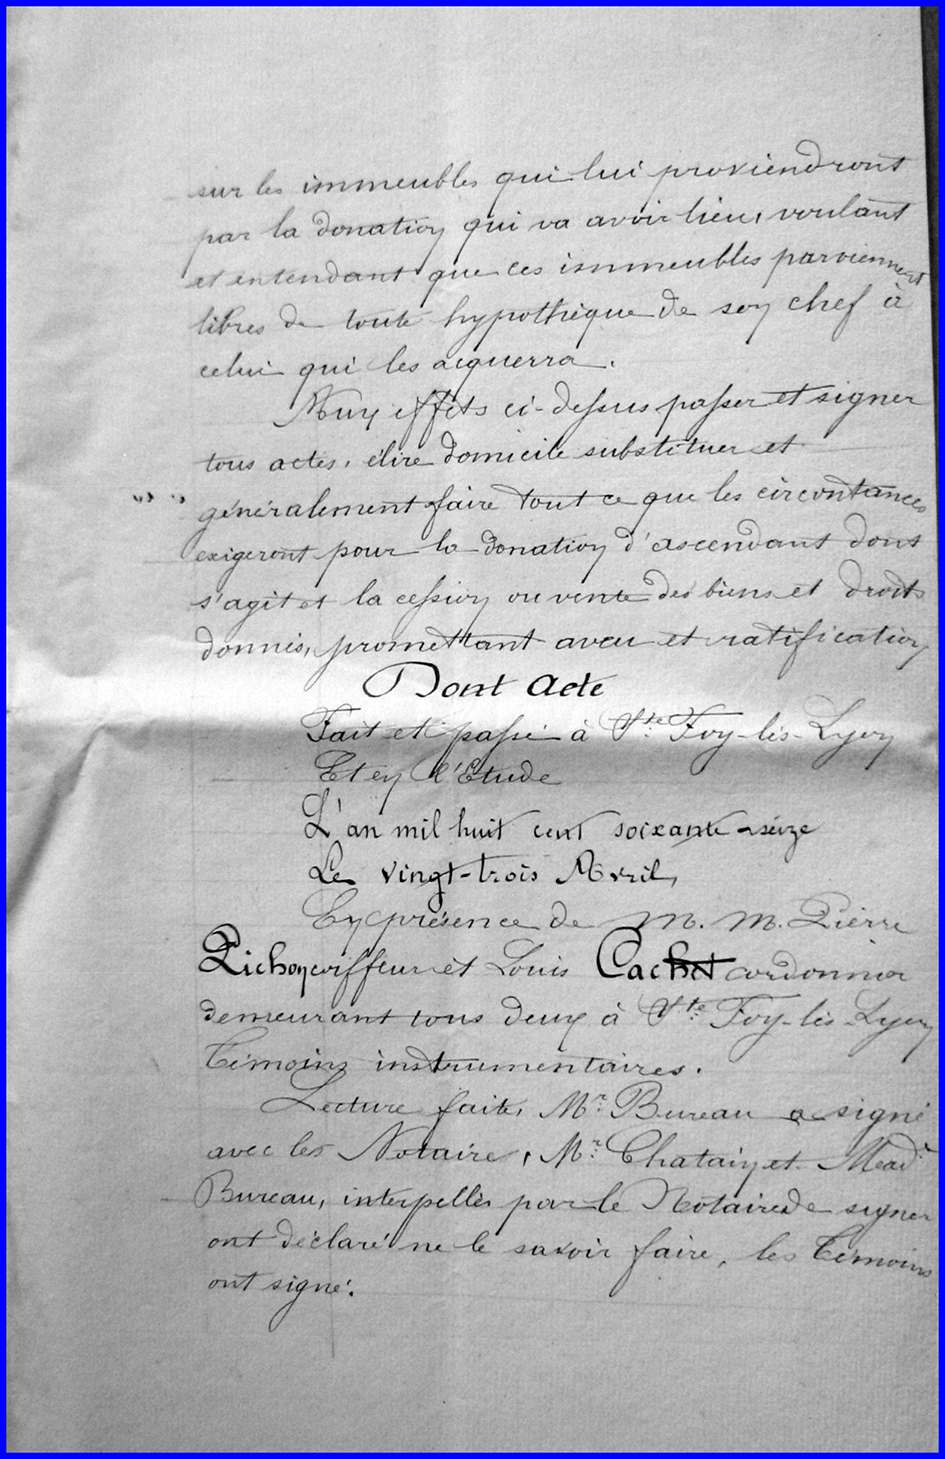 sur les immeubles qui lui proviendront
par la donation qui va avoir lieu, voulant
et entendant que ces immeubles parviennent
libres de toute hypothèque de son chef à
celui qui les acquerra.
Aux effets ci-dessus passer et signer
tous actes, élire domicile substituer et
généralement faire tout ce que les circontances
exigeront pour la donation d'ascendant dont
s'agit et la cession ou vente des biens et droits
donnés, promettant aveu et ratification
Dont Acte
Fait et passé à Ste. Foy-lès-Lyon
Et en l'Etude
L'an mil huit cent soixante-seize
Le vingt-trois Avril,
En présence de M. M. Pierre
Pichon coiffeur et Louis Cachet cordonnier
demeurant tous deux à Ste. Foy-lès-Lyon
Témoins instrumentaires.
Lecture faite, Mr. Bureau a signé
avec les Notaire, Mr. Chatain et Made
Bureau, interpellés par le Notaire de signer
ont déclaré ne le savoir faire, les Témoins
ont signé.